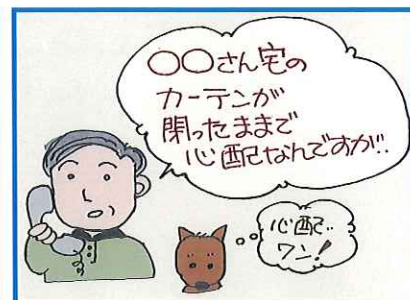 ○○さん宅の
カーテンが
閉ったままで
心配なんですが!!
心配…
ワン!